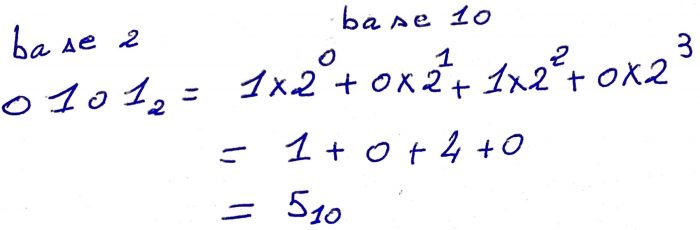 base 2 base 10
0101₂ = 1×2⁰ + 0×2¹ + 1×2² + 0×2³
= 1 + 0 + 4 + 0
= 5₁₀